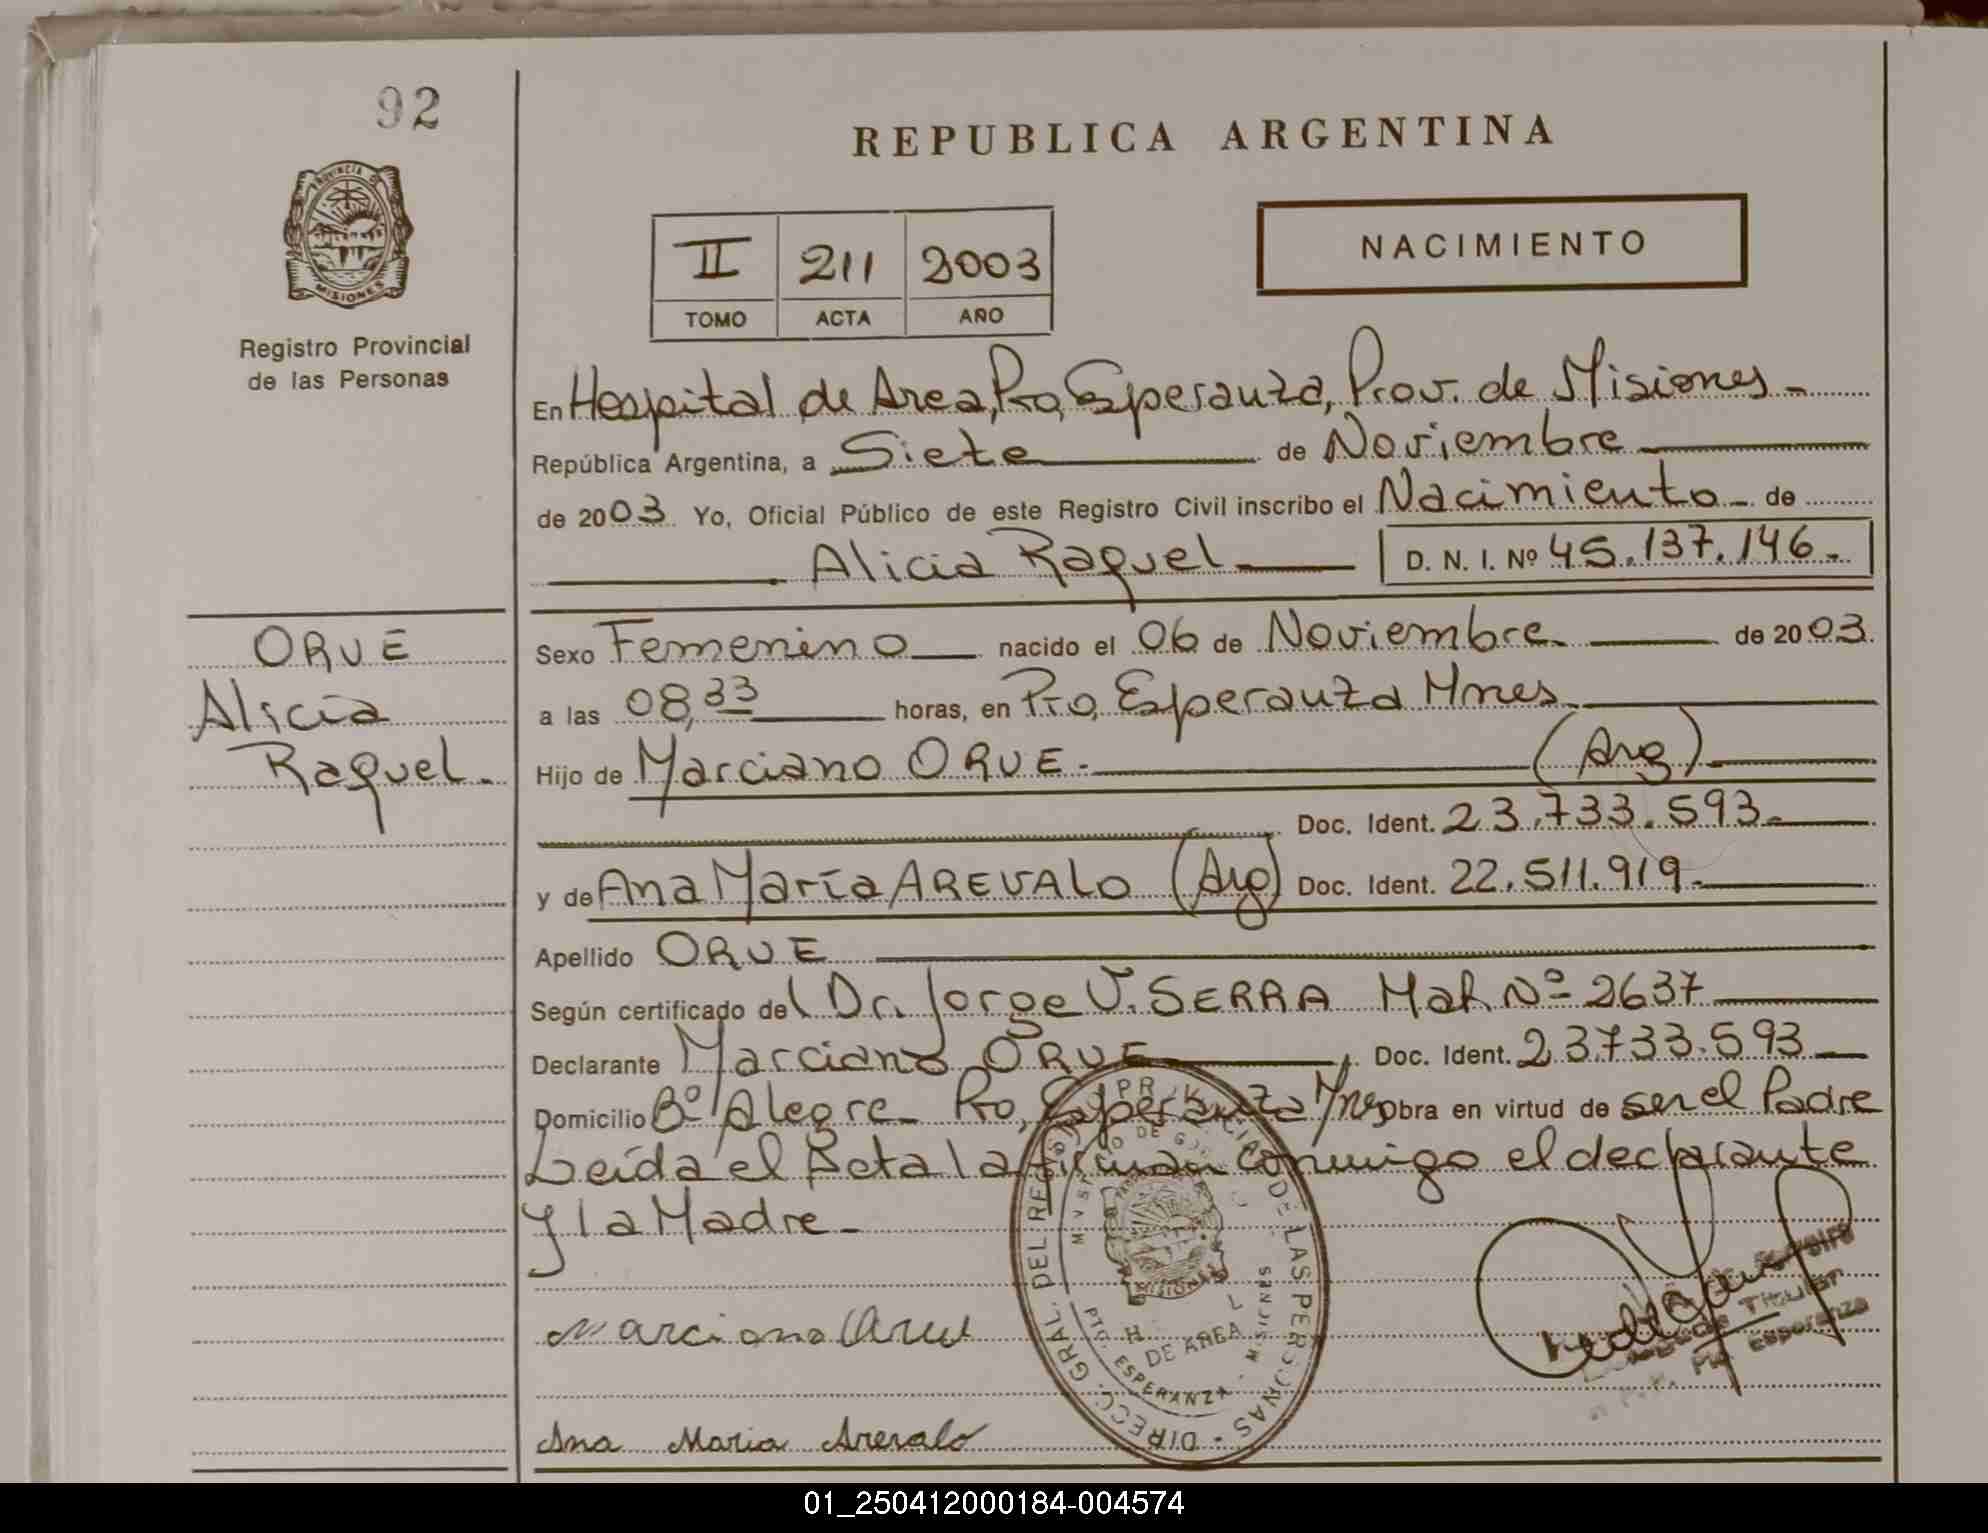 92
REPUBLICA ARGENTINA
PROVINCIA DE
MISIONES
Registro Provincial
de las Personas
II 211 2003
TOMO ACTA AÑO
NACIMIENTO
En Hospital de Area, Pto, Esperanza, Prov. de Misiones -
República Argentina, a Siete de Noviembre
de 2003 Yo, Oficial Público de este Registro Civil inscribo el Nacimiento - de
Alicia Raquel D. N. I. Nº 45.137.146.-
ORUE
Alicia
Raquel.
Sexo Femenino nacido el 06 de Noviembre de 2003.
a las 08,33 horas, en Pto, Esperanza Mnes
Hijo de Marciano ORUE. (Arg)
Doc. Ident. 23.733.593.
y de Ana María AREVALO (Arg) Doc. Ident. 22.511.919.
Apellido ORUE
Según certificado del Dr. Jorge V. SERRA Mat Nº 2637
Declarante Marciano ORUE Doc. Ident. 23733.593
Domicilio Bº Alegre Pto, Esperanza Mnes Obra en virtud de ser el Padre
Leída el Acta la firman conmigo el declarante
y la Madre -
DIRECC. GRAL. DEL REGIST PROVINCIAL DE LAS PERSONAS
MISIONES
DE AREA
ESPERANZA - MISIONES
Marciano Orue
Titular
Pto Esperanza
Ana Maria Arevalo
01_250412000184-004574